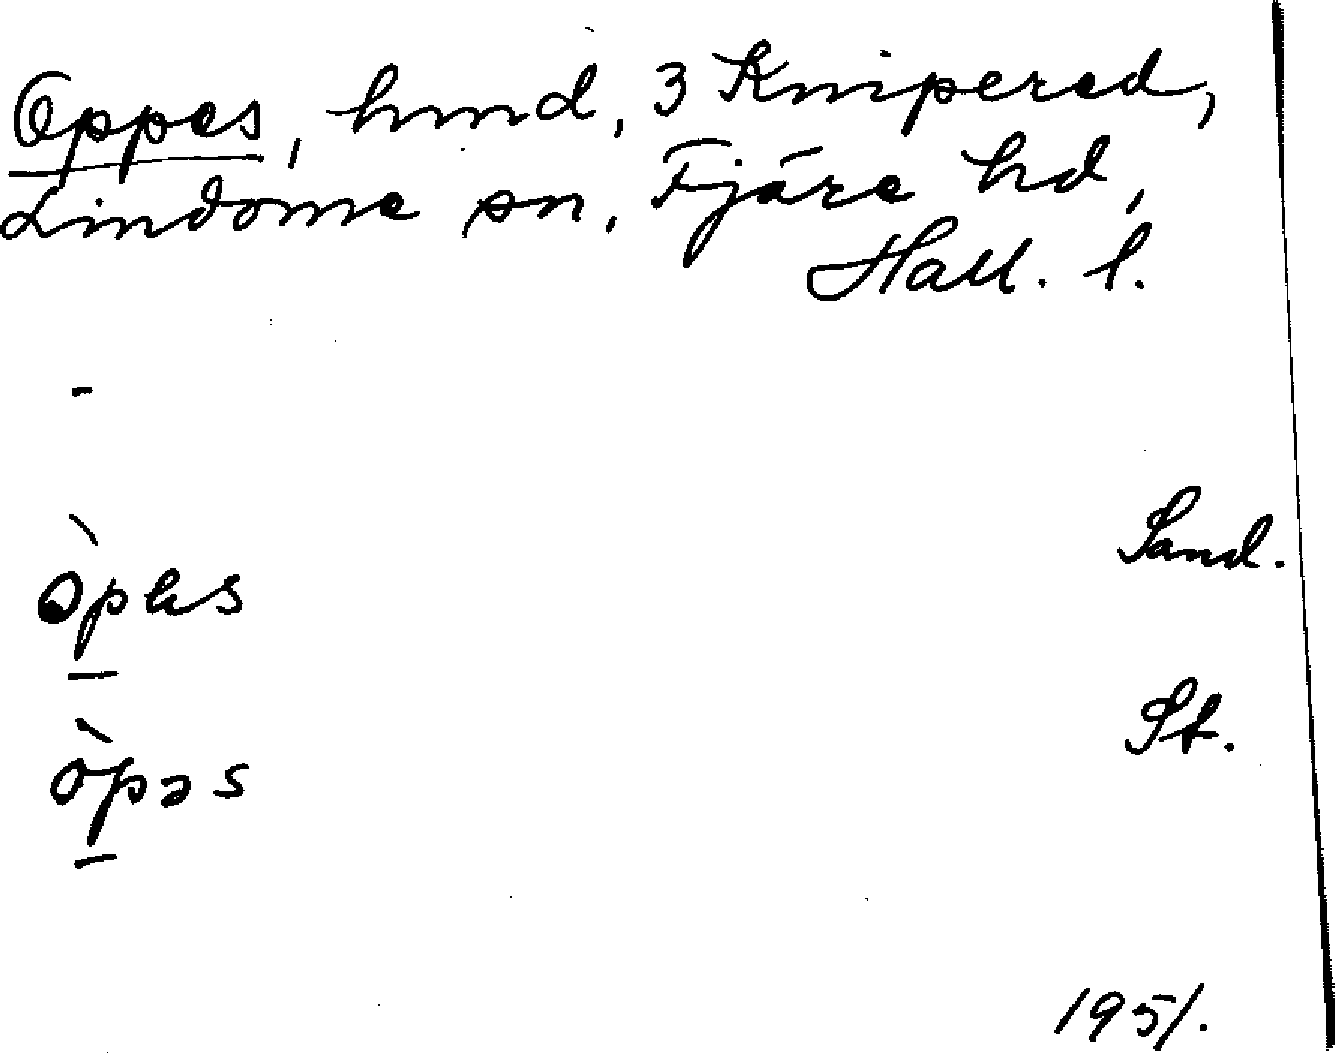 Oppes, hmd, 3 Kniperead,
Lindome sn, Fjäre hd,
Hall. l.
-
Sand.
St.
òpəs
1951.